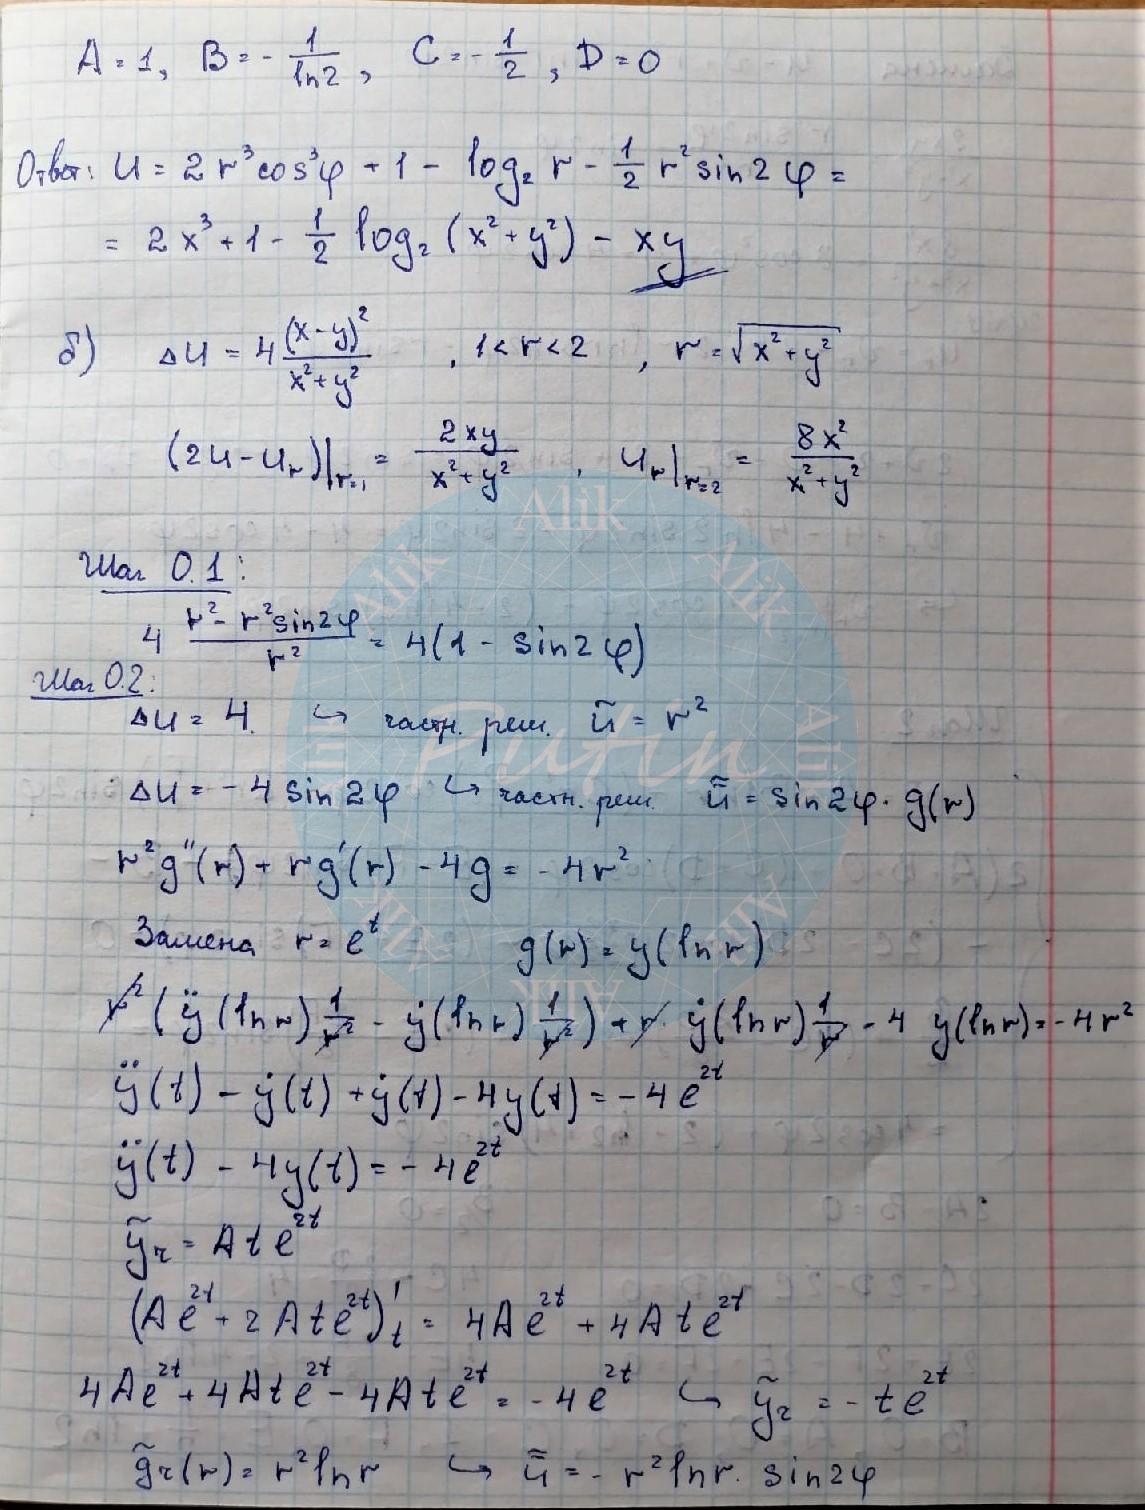 A = 1, B = - 1/ln2, C = - 1/2, D = 0
Ответ: U = 2 r³cos³φ + 1 - log₂ r - 1/2 r² sin2φ =
= 2x³ + 1 - 1/2 log₂ (x² + y²) - xy
б) ΔU = 4 (x-y)²/(x²+y²) , 1<r<2 , r = √(x²+y²)
(2U - Uᵣ)|r=1 = 2xy/(x²+y²) , Uᵣ|r=2 = 8x²/(x²+y²)
Шаг 0.1:
4 (r² - r²sin2φ)/r² = 4(1 - sin2φ)
Шаг 0.2:
ΔU = 4. ↪ частн. реш. ũ = r²
ΔU = -4 sin2φ ↪ частн. реш. ũ̃ = sin2φ · g(r)
r²g''(r) + rg'(r) - 4g = -4r²
Замена r = eᵗ g(r) = y(ln r)
r² (ÿ(ln r) 1/r² - ẏ(ln r) 1/r²) + r · ẏ(ln r) 1/r - 4 y(ln r) = -4r²
ÿ(t) - ẏ(t) + ẏ(t) - 4y(t) = -4e²ᵗ
ÿ(t) - 4y(t) = -4e²ᵗ
ỹч = Ate²ᵗ
(Ae²ᵗ + 2Ate²ᵗ)'t = 4Ae²ᵗ + 4Ate²ᵗ
4Ae²ᵗ + 4Ate²ᵗ - 4Ate²ᵗ = -4e²ᵗ ↪ ỹч = -te²ᵗ
g̃ч(r) = r² ln r ↪ ũ̃ = -r² ln r · sin2φ
Alik
Alik
Alik
Alik
Ali
Putin
Alik
Alik
ALIK